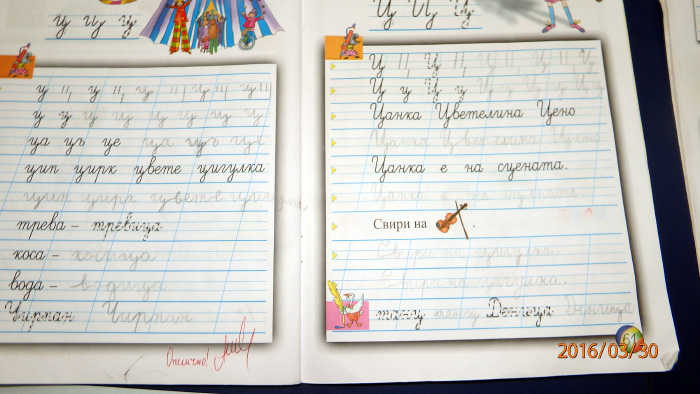 ц ц ц
ц ц ц ц ц ц ц ц
ц ц ц ц ц ц ц ц
ца цъ це ца цъ це
цип цирк цвете цигулка
цип цирк цвете цигулка
трева – тревица
коса – косица
вода – водица
Чирпан Чирпан
Отлично!
Ц Ц Ц
Ц Ц Ц Ц Ц Ц Ц Ц
Ц Ц Ц Ц Ц Ц Ц Ц
Цанка Цветелина Цено
Цанка Цветелина Цено
Цанка е на сцената.
Цанка е на сцената.
Свири на
Свири на цигулка.
Свири на цигулка.
танц танц Деница Деница
61
2016/03/30